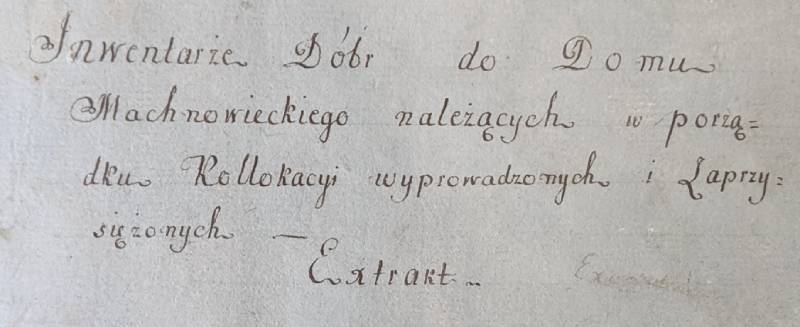 Inwentarze Dóbr do Domu
Machnowieckiego należących w porzą=
dku Kollokacyi wyprowadzonych i Zaprzy=
siężonych —
Extrakt